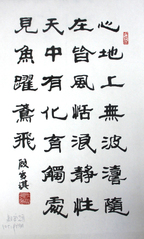 心地上無波濤隨
在皆風恬浪靜性
天中有化育觸處
見魚躍鳶飛